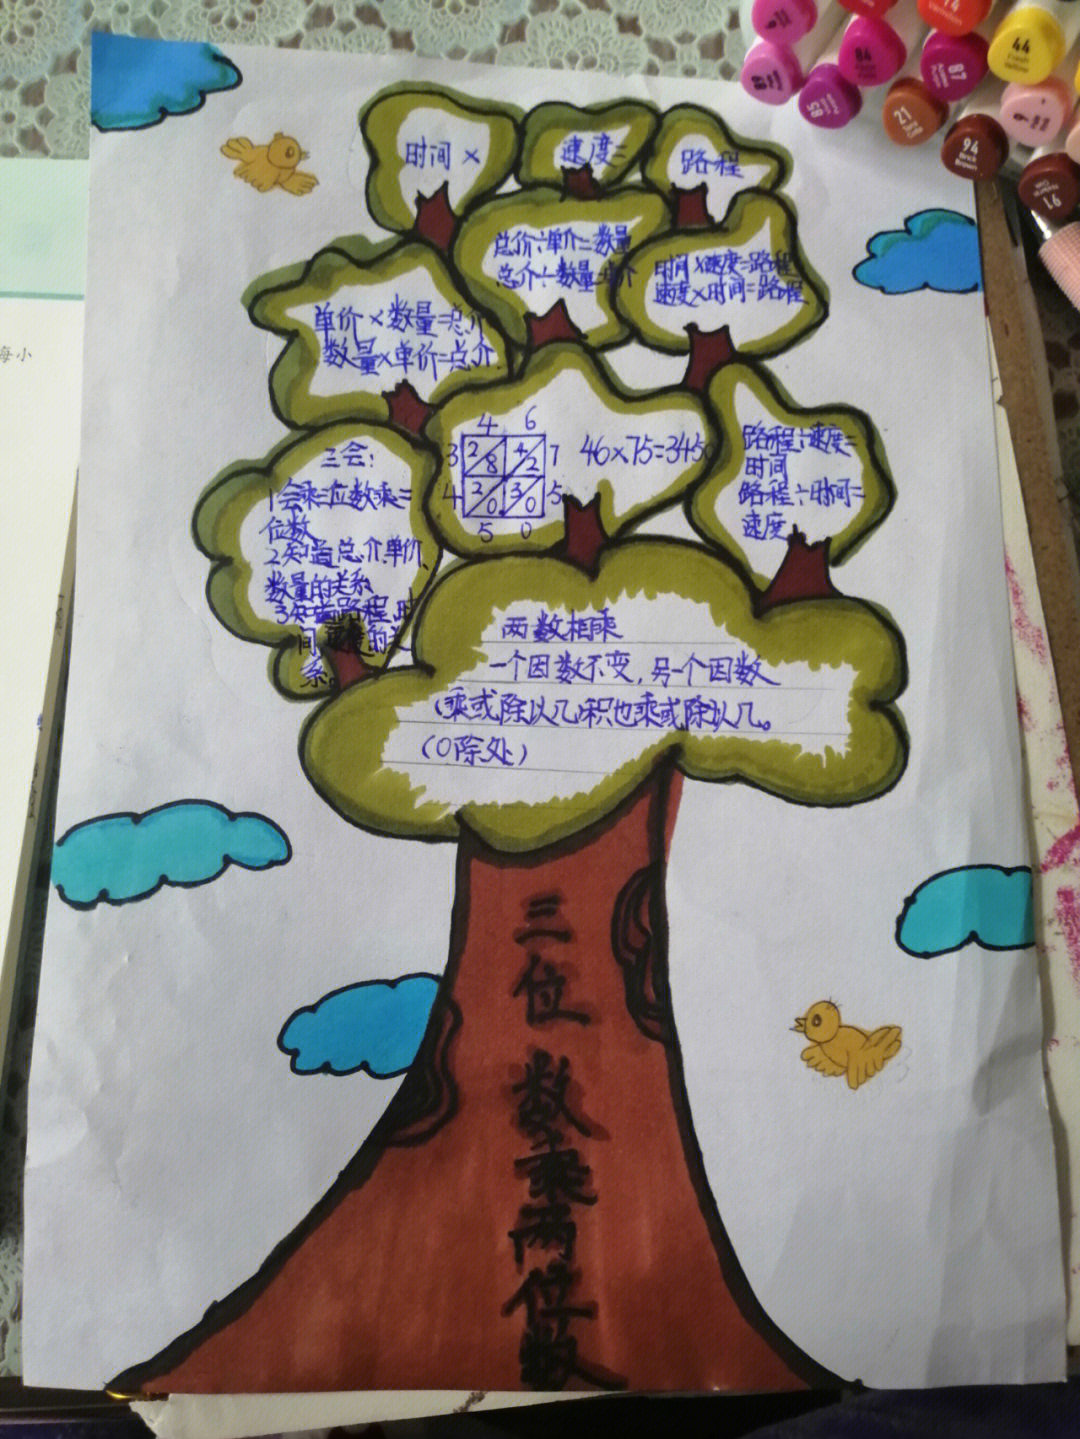 时间 ×
速度=
路程
总价÷单价=数量
总介÷数量=单介
时间×速度=路程
速度×时间=路程
单价×数量=总介
数量×单价=总介
4 6
3 2 8 4 2 7
4 2 0 3 0 5
5 0
46×75=3450
路程÷速度=
时间
路程÷时间=
速度
三会:
1会乘三位数乘二
位数
2知道总介、单价、
数量的关系
3知道路程、时
间、速度的关
系。
两数相乘
一个因数不变,另一个因数
(乘或除以几,积也乘或除以几。
(0除处)
三位数乘两位数
每小
44
Fresh
Yellow
84
87
85
89
21
94
Brick
Brown
91